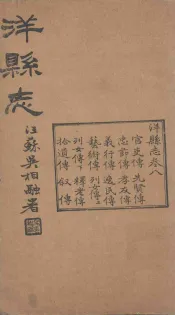 洋縣志
江蘇吳柏融署
洋縣志卷八
官吏傳 先賢傳
忠節傳 孝友傳
義行傳 逸民傳
藝術傳 列女傳上
列女傳下 釋老傳
拾遺傳 叙傳